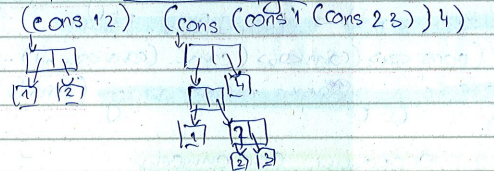 (cons 1 2) (cons (cons 1 (cons 2 3)) 4)
1 2 4
1
2 3